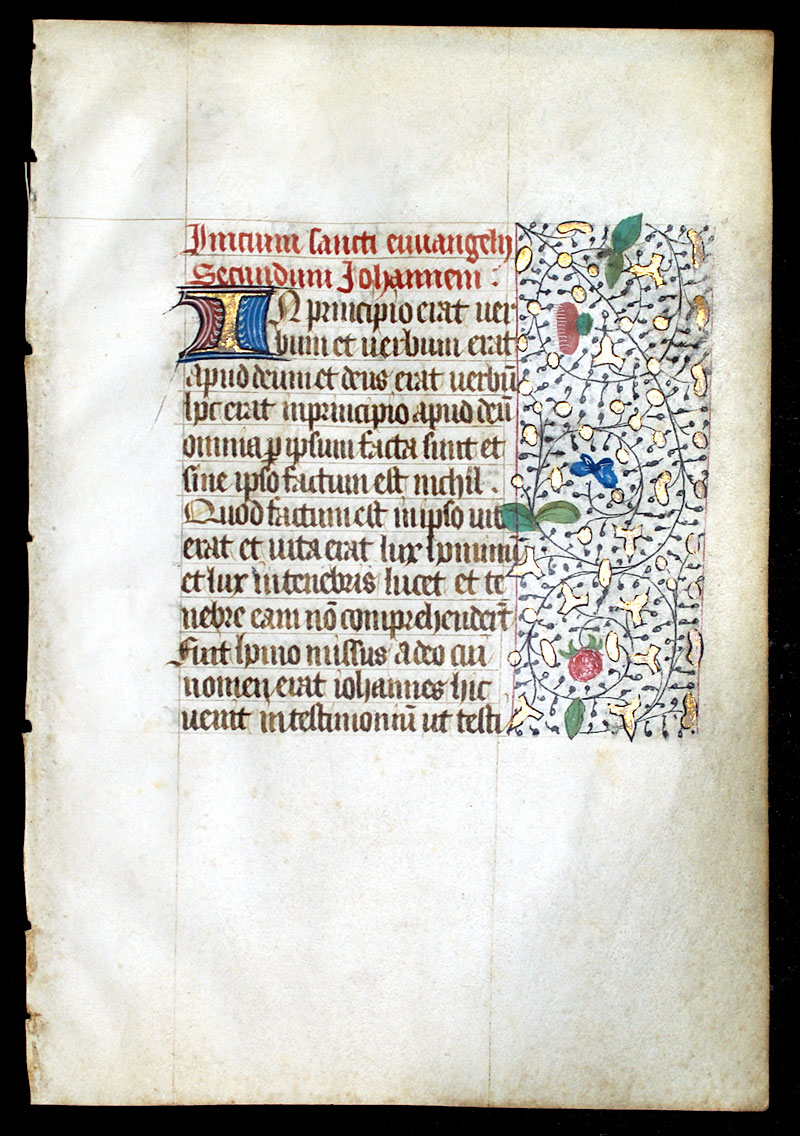 Inicium sancti euuangelij
Secundum Johannem :
IN principio erat uer
bum et uerbum erat
apud deum et deus erat uerbū
hoc erat in principio apud deū
omnia ꝑ ipsum facta sunt et
sine ipso factum est nichil .
Quod factum est in ipso uita
erat et uita erat lux hominū
et lux in tenebris lucet et te
nebre eam nō comprehenderūt
Fuit homo missus a deo cui
nomen erat iohannes hic
uenit in testimoniū ut testi